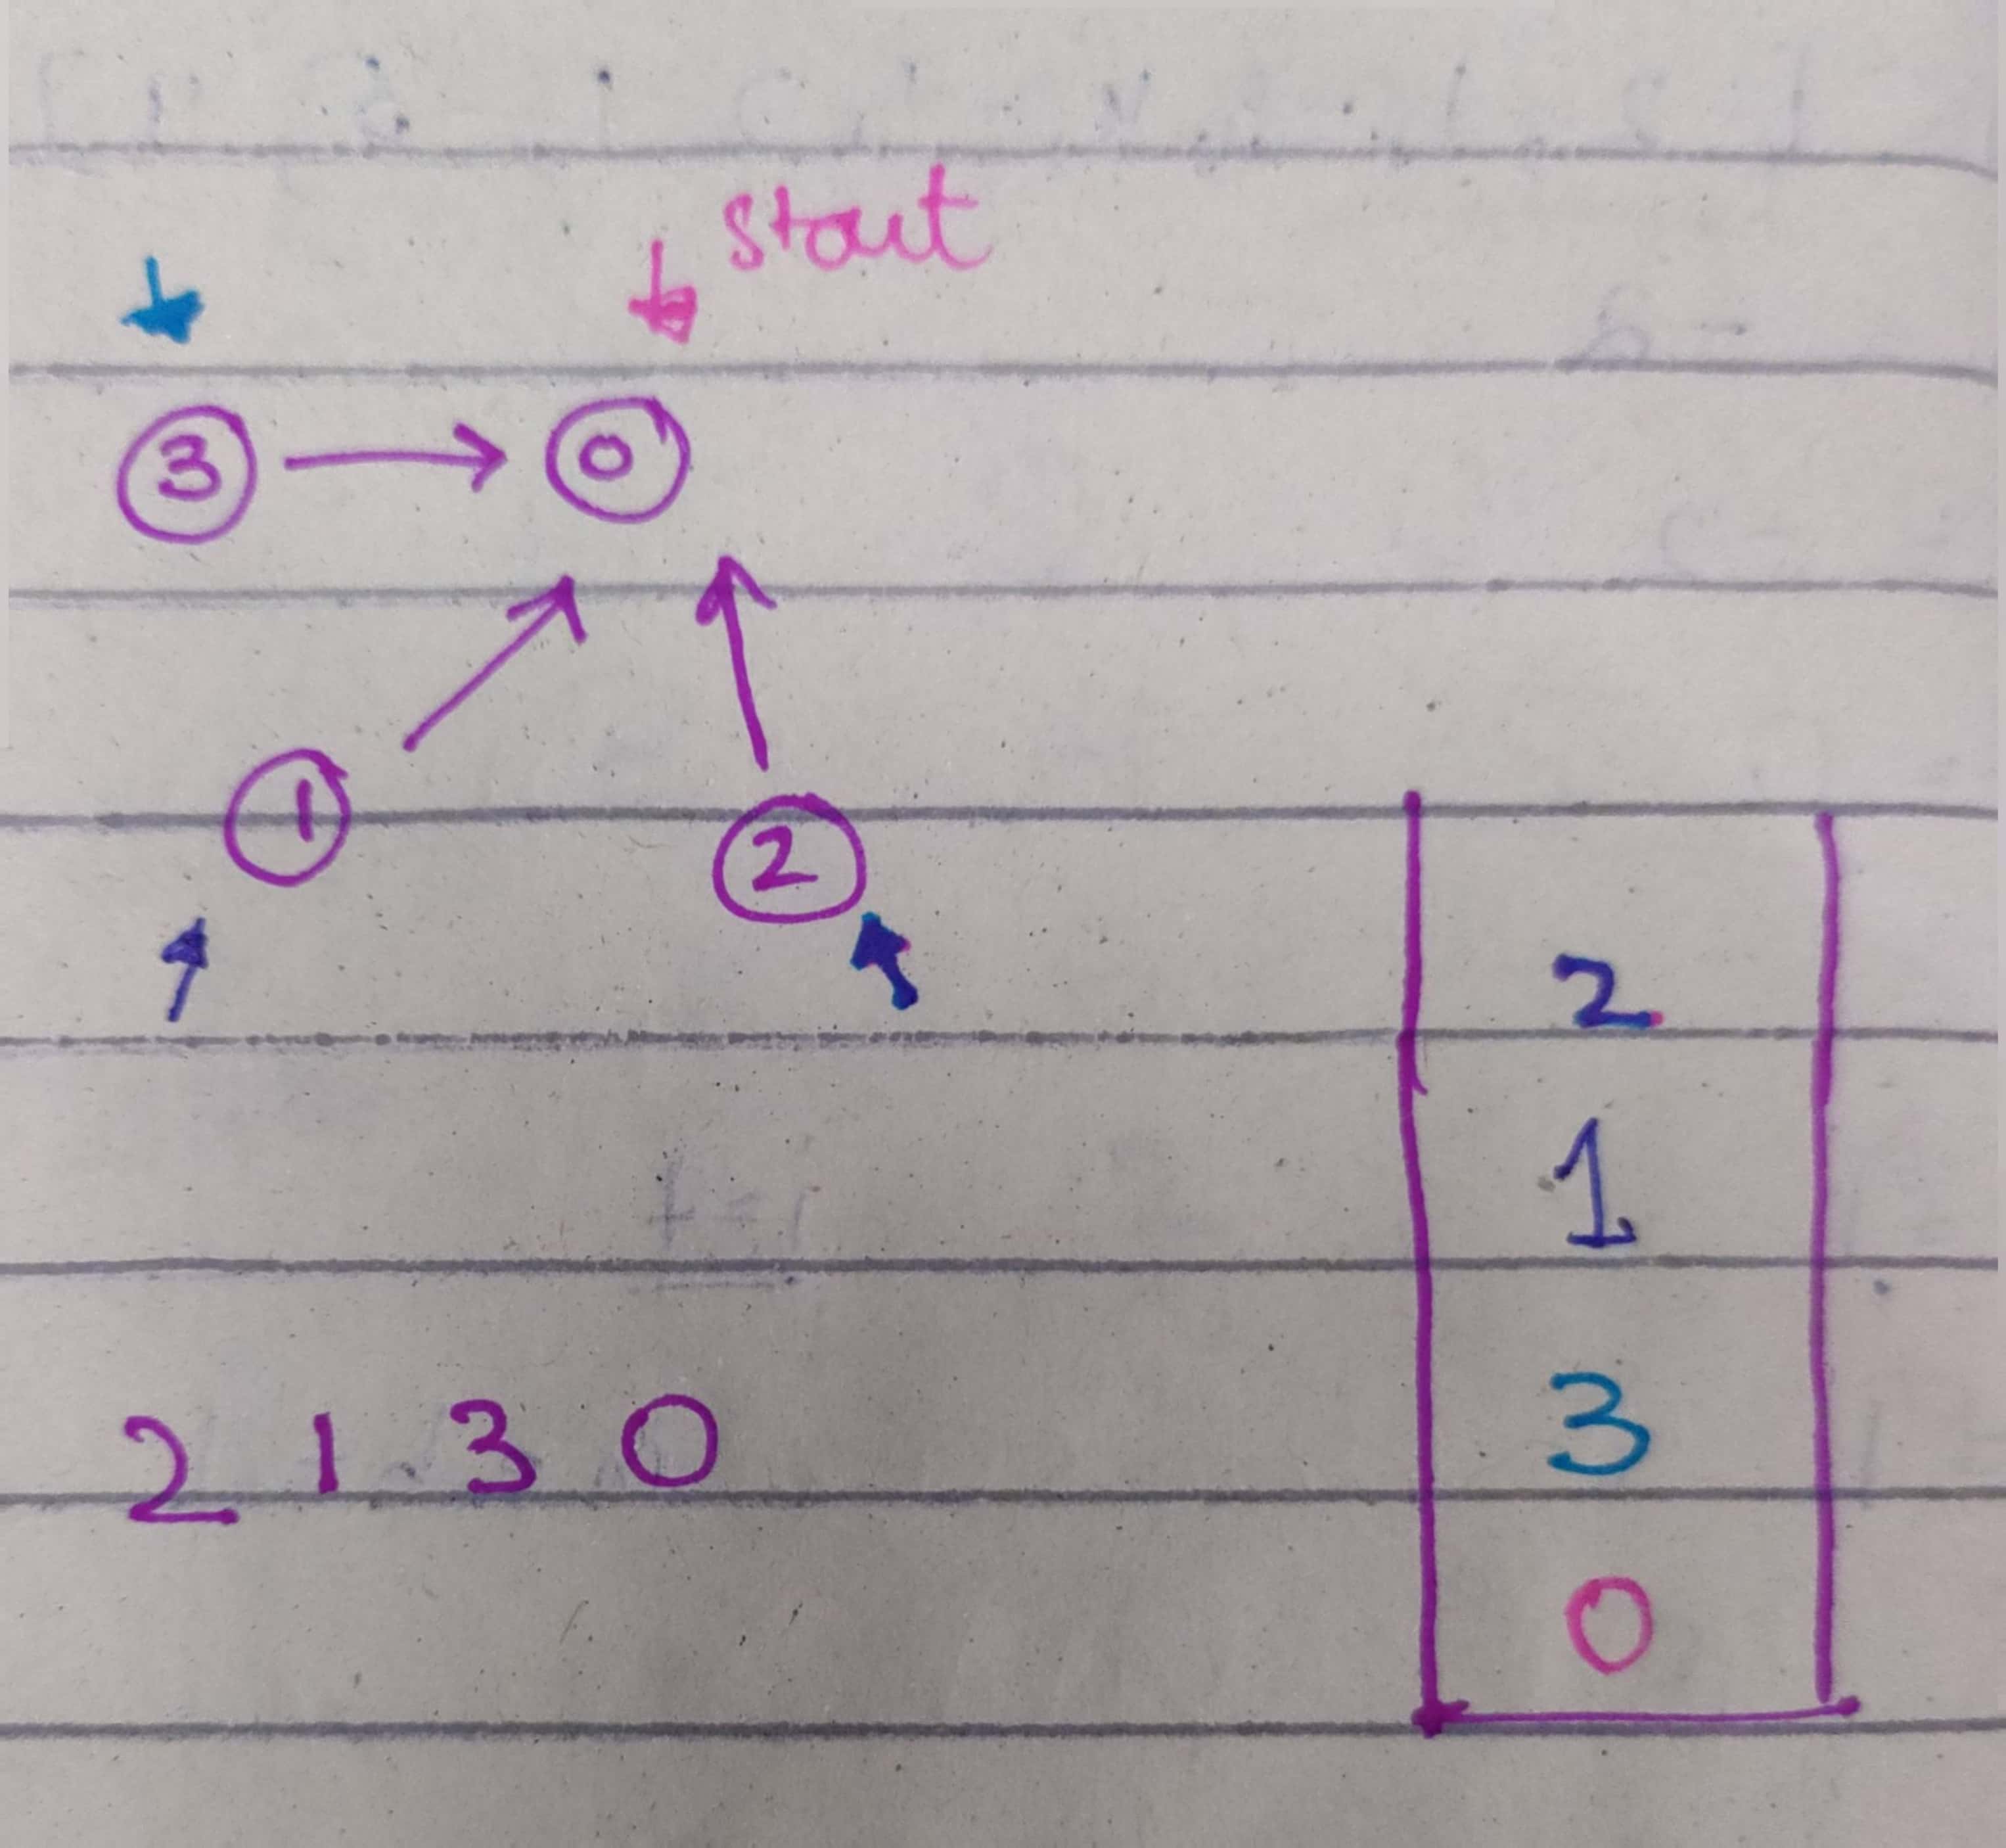 start
3 0
1
2
2
1
3
2 1 3 0
0